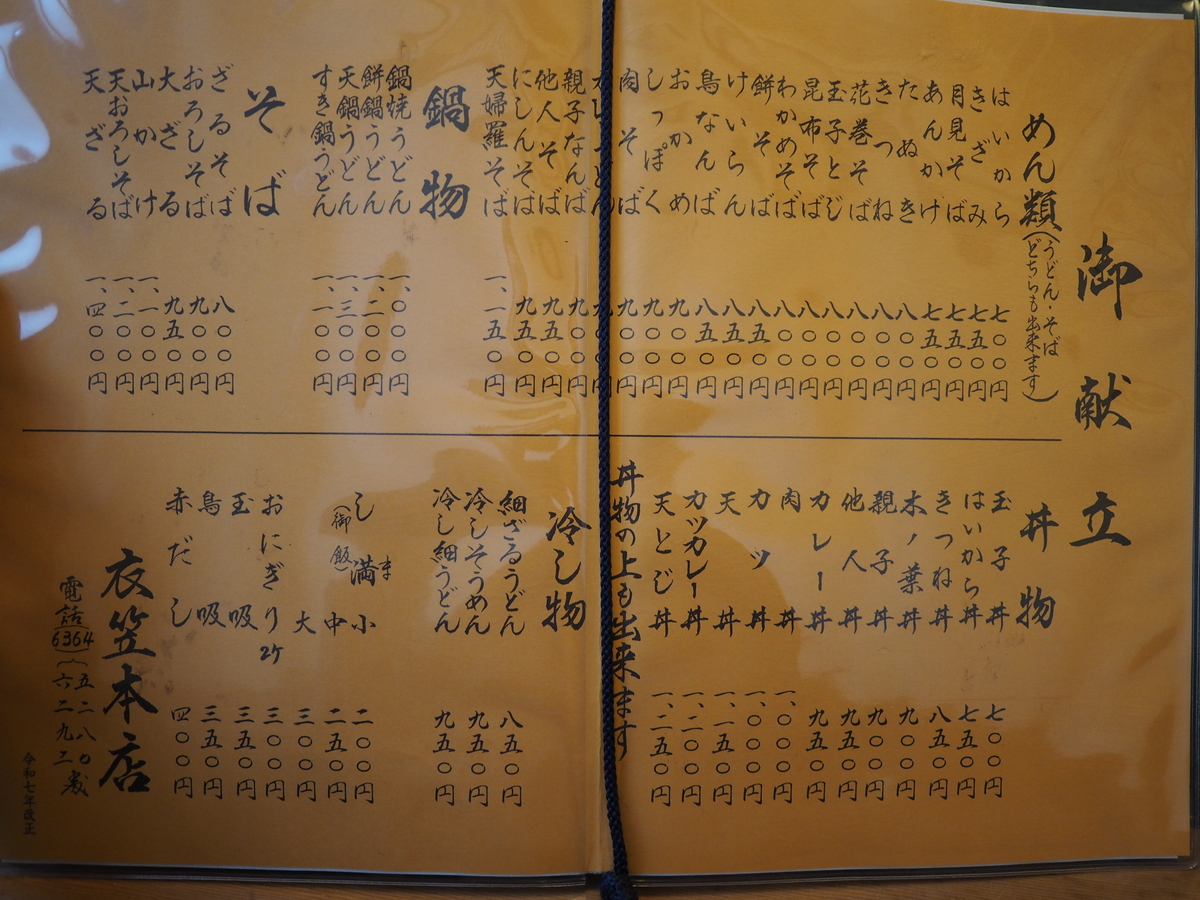 御献立
めん類(うどん・そば
どちらも出来ます)
はいから 七〇〇円
きざみ 七五〇円
月見そば 七五〇円
あんかけ 七五〇円
たぬき 八〇〇円
きつね 八〇〇円
花巻そば 八〇〇円
玉子とじ 八〇〇円
昆布そば 八〇〇円
わかめそば 八〇〇円
餅そば 八五〇円
けいらん 八五〇円
鳥なんば 八五〇円
おかめ 九〇〇円
しっぽく 九〇〇円
肉そば 九〇〇円
親子なんば 九〇〇円
他人そば 九五〇円
にしんそば 九五〇円
天婦羅そば 一、一五〇円
鍋物
鍋焼うどん 一、〇〇〇円
餅鍋うどん 一、二〇〇円
天鍋うどん 一、三〇〇円
すき鍋うどん 一、一〇〇円
そば
ざるそば 八〇〇円
おろしそば 九〇〇円
大ざる 九五〇円
山かけ 一、一〇〇円
天おろしそば 一、二〇〇円
天ざる 一、四〇〇円
丼物
玉子丼 七〇〇円
はいから丼 七五〇円
きつね丼 八五〇円
木ノ葉丼 九〇〇円
親子丼 九〇〇円
他人丼 九五〇円
カレー丼 九五〇円
肉丼 一、〇〇〇円
カツ丼 一、〇〇〇円
天丼 一、一五〇円
カツカレー丼 一、二〇〇円
天とじ丼 一、二五〇円
丼物の上も出来ます
冷し物
細ざるうどん 八五〇円
冷しそうめん 九五〇円
冷し細うどん 九五〇円
ま
し満 小 二〇〇円
(御飯) 中 二五〇円
大 三〇〇円
おにぎり2ケ 三〇〇円
玉吸 三五〇円
鳥吸 三五〇円
赤だし 四〇〇円
衣笠本店
電話(6364)五二八〇
六二九二
令和七年改正